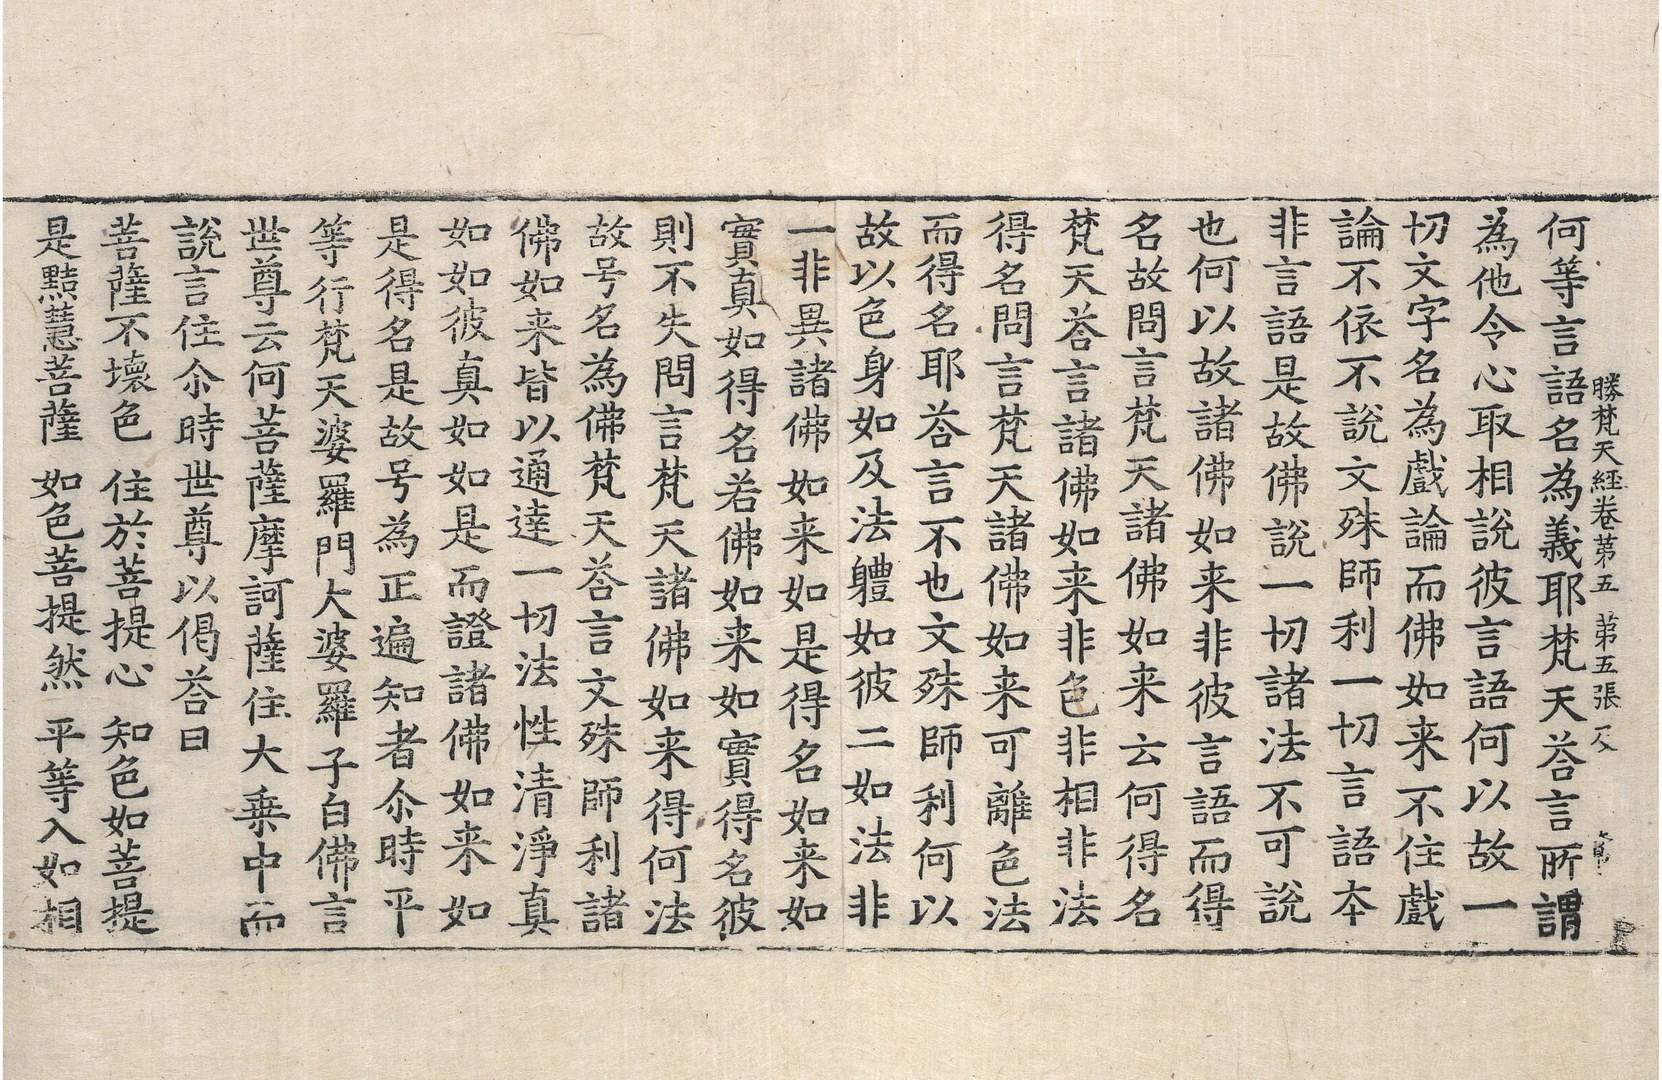 勝梵天經卷第五 第五張
何等言語名為義耶梵天荅言所謂
為他令心取相說彼言語何以故一
切文字名為戲論而佛如来不住戲
論不依不說文殊師利一切言語夲
非言語是故佛說一切諸法不可說
也何以故諸佛如来非彼言語而得
名故問言梵天諸佛如来云何得名
梵天荅言諸佛如来非色非相非法
得名問言梵天諸佛如来可離色法
而得名耶荅言不也文殊師利何以
故以色身如及法軆如彼二如法非
一非異諸佛如来如是得名如来如
實真如得名若佛如来如實得名彼
則不失問言梵天諸佛如来得何法
故号名為佛梵天荅言文殊師利諸
佛如来皆以通達一切法性清淨真
如如彼真如如是而證諸佛如来如
是得名是故号為正遍知者尒時平
等行梵天婆羅門大婆羅子白佛言
世尊云何菩薩摩訶薩住大乗中而
說言住尒時世尊以偈荅曰
菩薩不壞色 住於菩提心 知色如菩提
是黠慧菩薩 如色菩提然 平等入如相